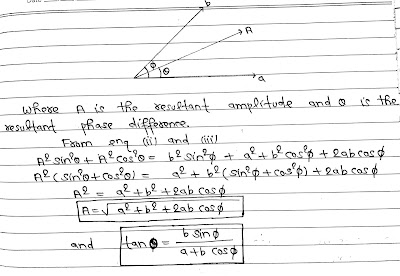 b
A
φ
θ
a
where A is the resultant amplitude and θ is the
resultant phase difference.
From eqⁿ (ii) and (iii)
A² sin²θ + A² cos²θ = b² sin²φ + a² + b² cos²φ + 2ab cosφ
A² (sin²θ + cos²θ) = a² + b² (sin²φ + cos²φ) + 2ab cosφ
A² = a² + b² + 2ab cosφ
A = √a² + b² + 2ab cosφ
and tanθ = b sinφ / a + b cosφ